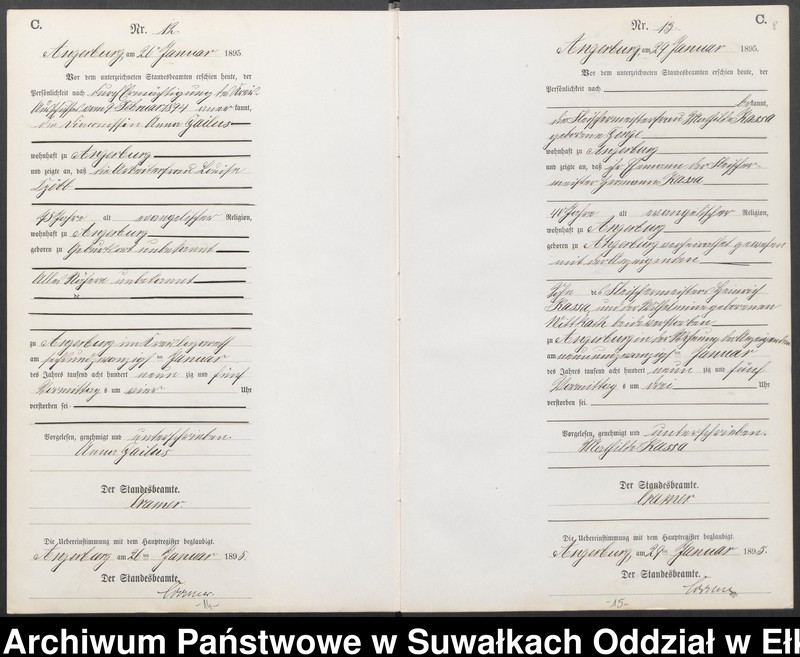 C.
Nr. 12.
Angerburg, am 26 Januar 1895.
Vor dem unterzeichneten Standesbeamten erschien heute, der
Persönlichkeit nach durch Ermächtigung des Kreis
Ausschusses vom 9 Februar 1894 aner kannt,
die Diaconissin Anna Gailus
wohnhaft zu Angerburg
und zeigte an, daß die Arbeiterfrau Louise
alt evangelischer Religion,
wohnhaft zu Angerburg
geboren zu Geburtsort unbekannt
Alles Nähere unbekannt
de
zu Angerburg im Kreis Lazareth
am sechsundzwanzigsten Januar
des Jahres tausend acht hundert neun zig und fünf
Vormittag s um Uhr
verstorben sei
Vorgelesen, genehmigt und unterschrieben.
Anna Gailus
Der Standesbeamte.
Cramer.
Die Uebereinstimmung mit dem Hauptregister beglaubigt.
Angerburg am 26ten Januar 1895.
Der Standesbeamte.
Cramer
C.
Nr. 13.
Angerburg, am 29 Januar 1895.
Vor dem unterzeichneten Standesbeamten erschien heute, der
Persönlichkeit nach
bekannt,
die Fleischermeisterfrau Mathilde Kassa
geborene
wohnhaft zu Angerburg
und zeigte an, daß ihr Ehemann der Fleischer-
meister Hermann Kassa
alt evangelischer Religion,
wohnhaft zu Angerburg
geboren zu Angerburg verheirathet gewesen
mit der Anzeigenden
Sohn des Fleischermeisters Heinrich
Kassa, und der Wilhelmine geborenen
Wittkath beide verstorben
zu Angerburg in der Wohnung der Anzeigenden
am neunundzwanzigsten Januar
des Jahres tausend acht hundert neun zig und fünf
Vormittag s um drei Uhr
verstorben sei
Vorgelesen, genehmigt und unterschrieben.
Mathilde Kassa
Der Standesbeamte.
Cramer
Die Uebereinstimmung mit dem Hauptregister beglaubigt.
Angerburg, am 29ten Januar 1895.
Der Standesbeamte.
Cramer
-15-
Archiwum Państwowe w Suwałkach Oddział w Ełk